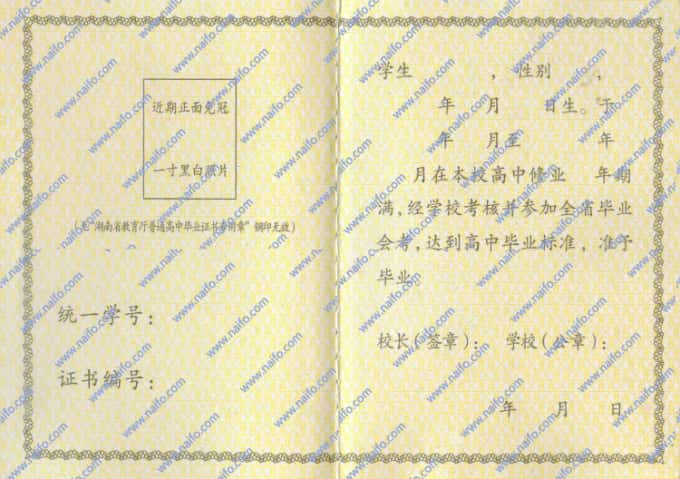 近期正面免冠
一寸黑白照片
(无“湖南省教育厅普通高中毕业证书专用章”钢印无效)
统一学号:
证书编号:
学生 , 性别 ,
年 月 日生。于
年 月至 年
月在本校高中修业 年期
满,经学校考核并参加全省毕业
会考,达到高中毕业标准,准予
毕业。
校长(签章): 学校(公章):
年 月 日
www.naifo.com